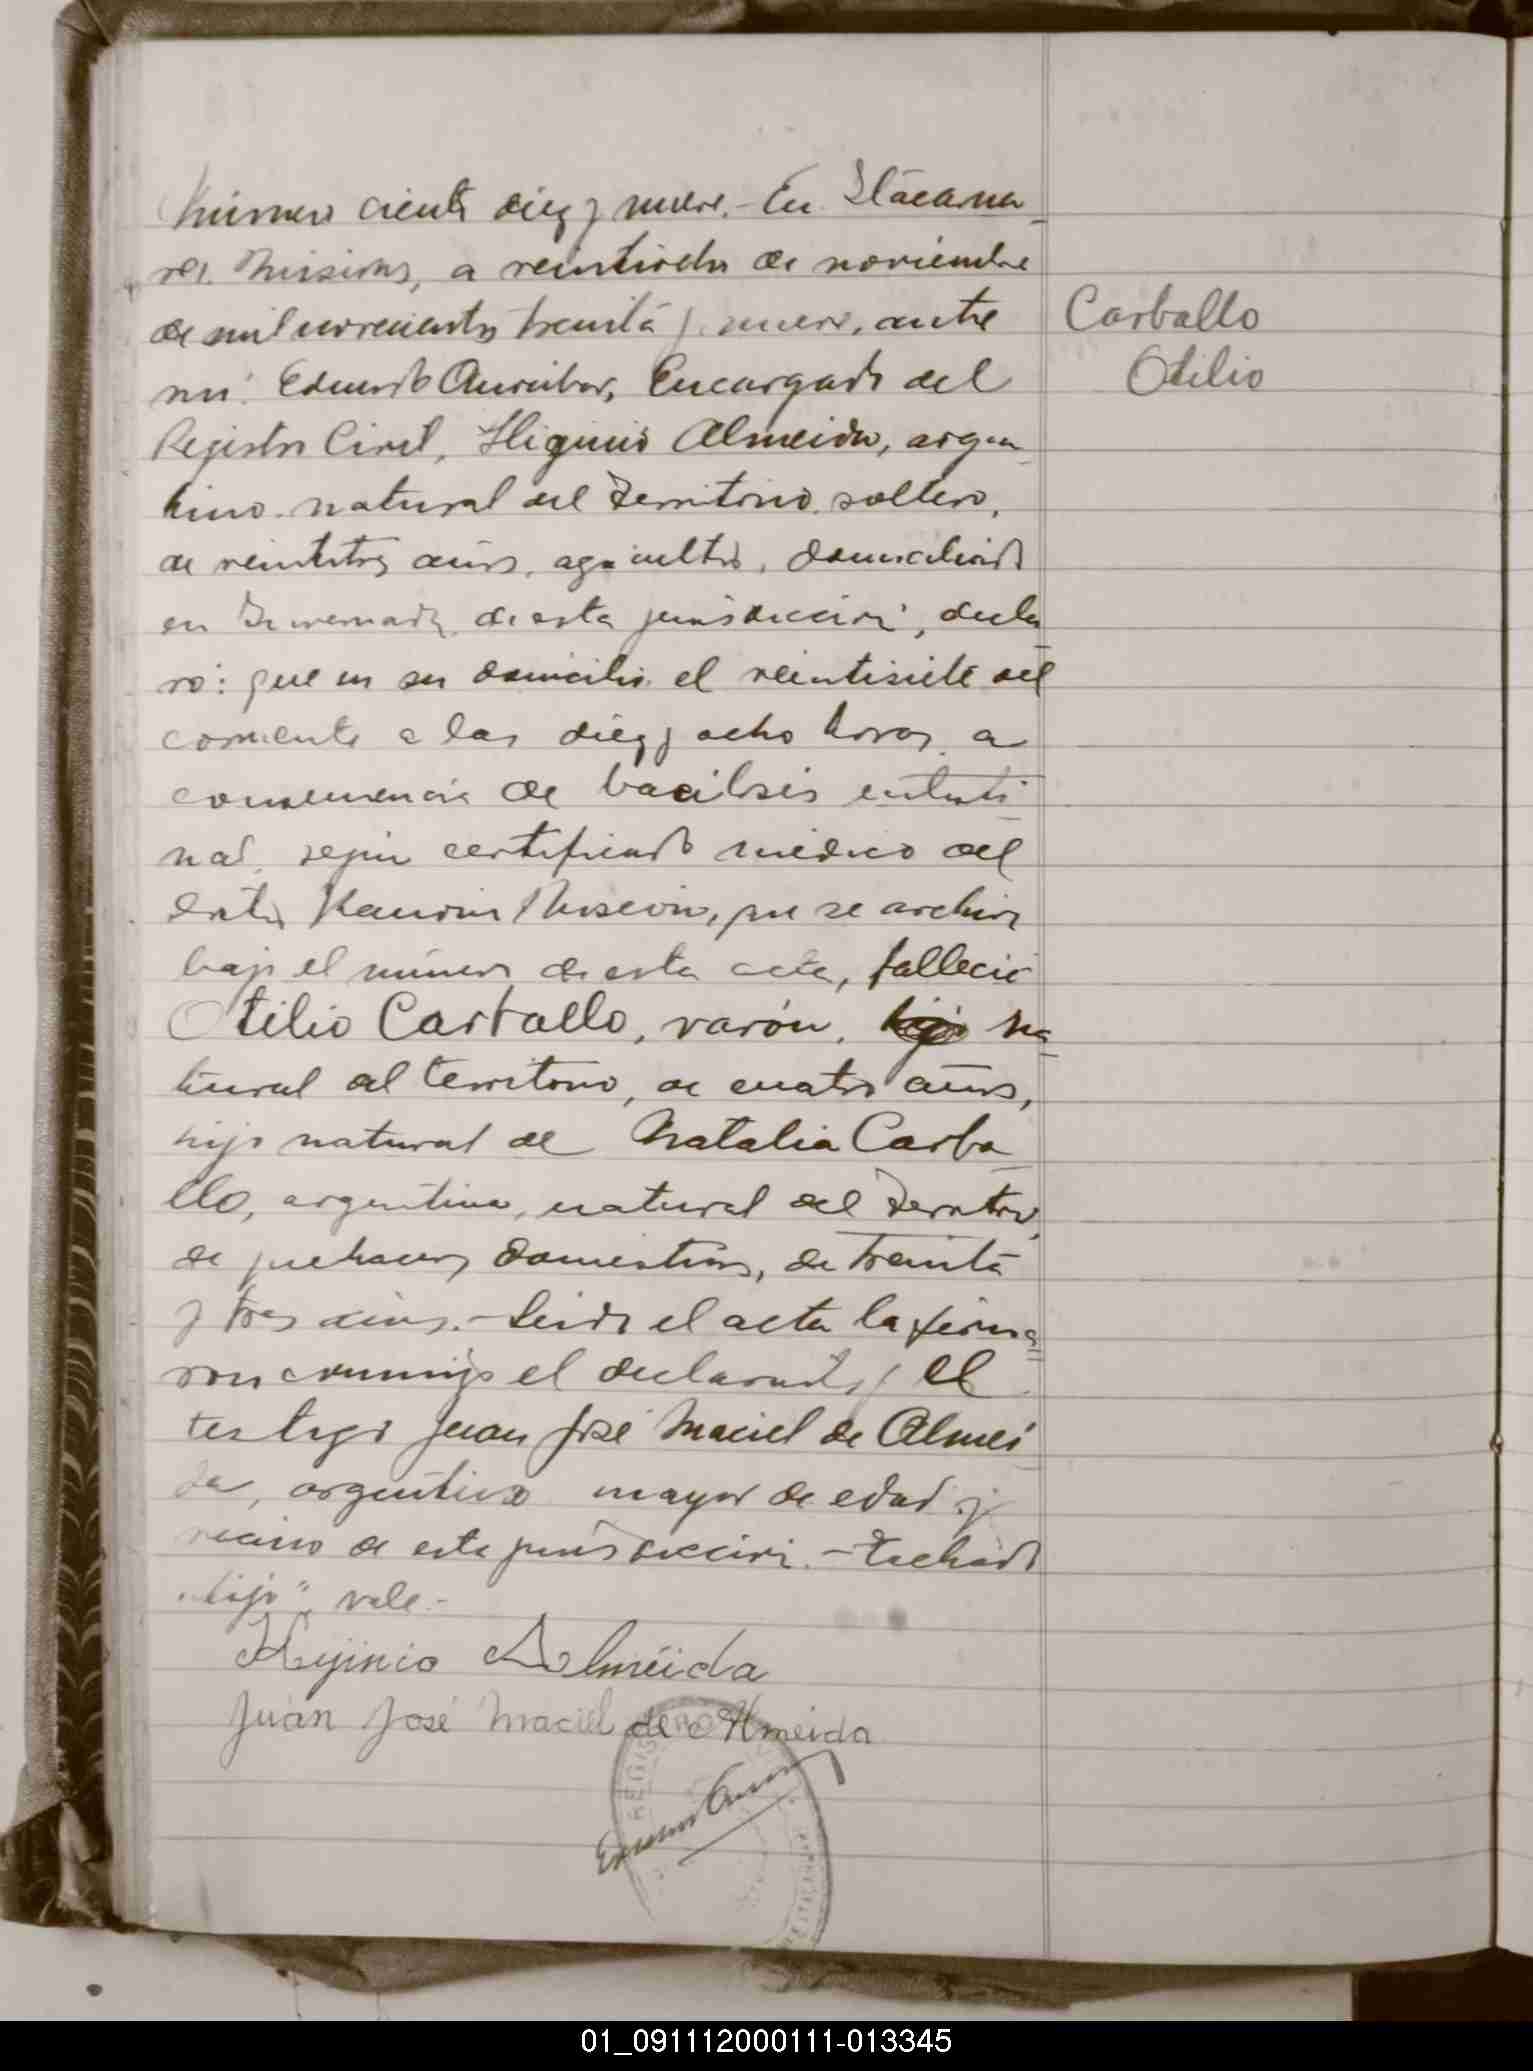 Número ciento diez y nueve.- En Itacarua
ré, Misiones, a veintiocho de noviembre
de mil novecientos treinta y nueve, ante
mí: Eduardo Encargado del
Registro Civil, Higinio Almeida, argen
tino, natural del Territorio, soltero,
de veintitrés años, agricultor, domiciliado
en de esta jurisdicción, decla
ró: que en su domicilio el veintisiete del
corriente a las diez y ocho horas, a
consecuencia de bacilosis intesti
nal, según certificado médico del
que se archiva
bajo el número de esta acta, falleció
Otilio Carballo, varón, hijo na
tural del territorio, de cuatro años,
hijo natural de Natalia Carba
llo, argentina, natural del Territorio,
de quehaceres domésticos, de treinta
y tres años.- Leída el acta la firma
ron conmigo el declarante y el
testigo Juan José Maciel de Almei
da, argentino mayor de edad y
vecino de esta jurisdicción.- Tachado
"hijo" vale.-
Carballo
Otilio
Hijinio Almeida
Juan José Maciel de Almeida
REGISTRO
01_091112000111-013345